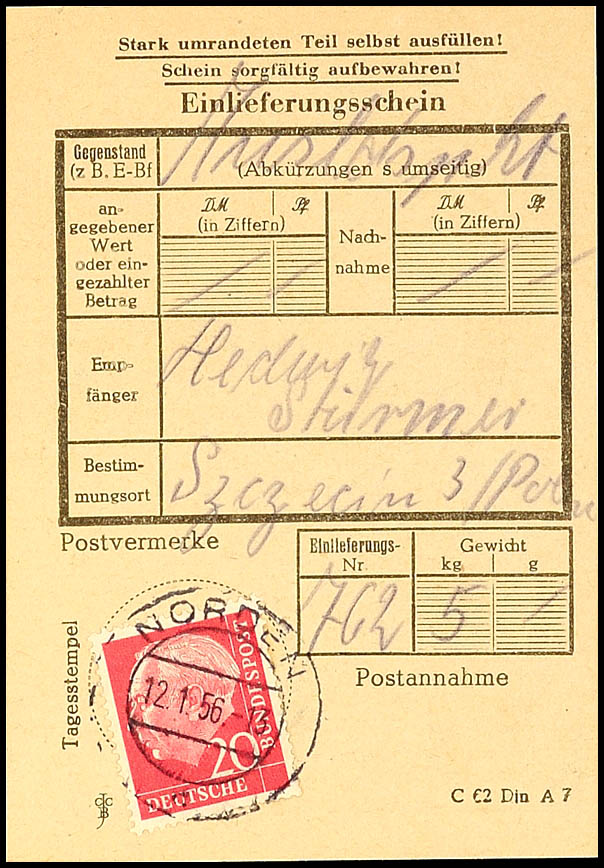 Stark umrandeten Teil selbst ausfüllen!
Schein sorgfältig aufbewahren!
Einlieferungsschein
Gegenstand
(z B. E-Bf
(Abkürzungen s umseitig)
an-
gegebener
Wert
oder ein-
gezahlter
Betrag
DM Pf
(in Ziffern)
Nach-
nahme
DM Pf
(in Ziffern)
Emp-
fänger
Hedwig
Stürmer
Bestim-
mungsort
Szczecin 3 /Polen
Postvermerke
Einlieferungs-
Nr.
762
Gewicht
kg g
5
Tagesstempel
NORDEN
12.1.56.-13
20
BUNDESPOST
DEUTSCHE
Postannahme
C 62 Din A 7